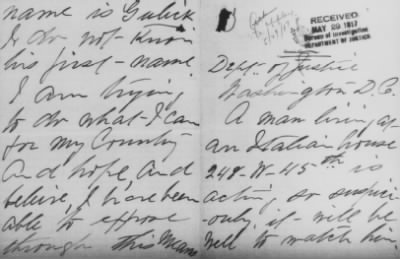 RECEIVED
MAY 29 1917
Bureau of Investigation
DEPARTMENT OF JUSTICE
Dept. of Justice
Washington D.C.
A man living at
an Italian house
248-W-45th is
acting so suspici-
-ously it will be
well to watch him.
name is Gulick
I do not know
his first-name.
I am trying
to do what I can
for my Country
And hope and
beleive, I have been
able to expose
through this Means